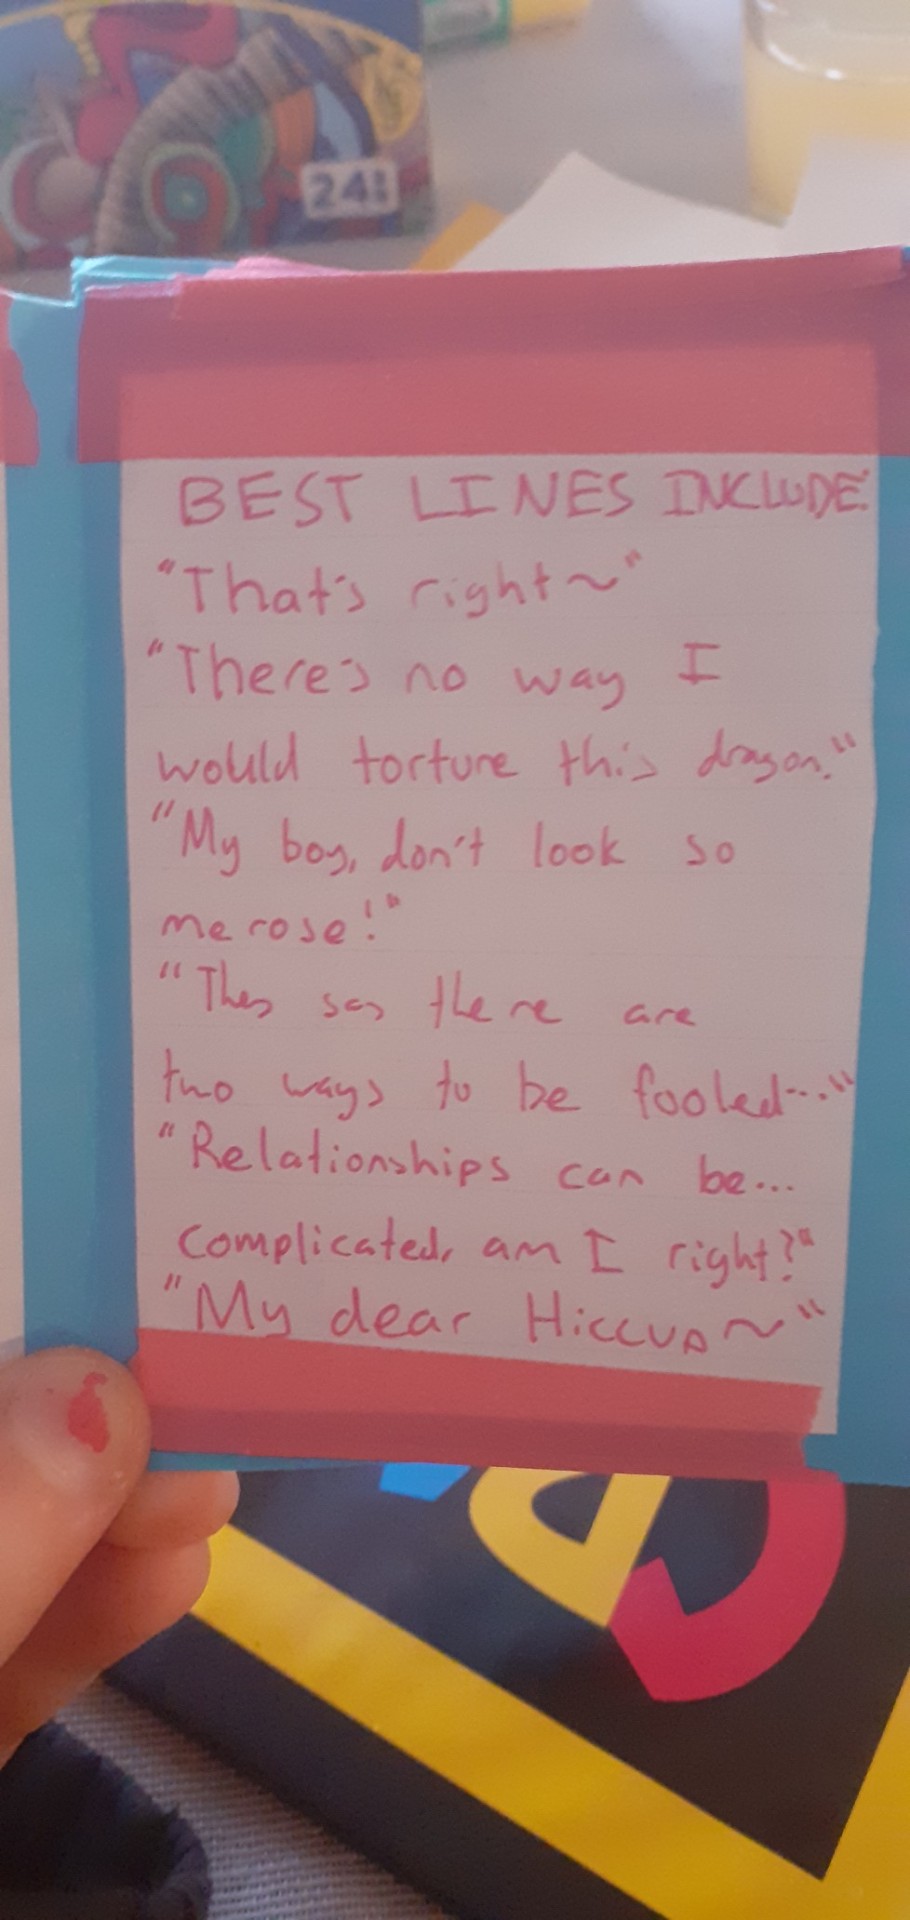 24!
BEST LINES INCLUDE:
"That's right~"
"There's no way I
would torture this dragon."
"My boy, don't look so
merose!"
"They say there are
two ways to be fooled..."
"Relationships can be...
complicated, am I right?"
"My dear Hiccup~"